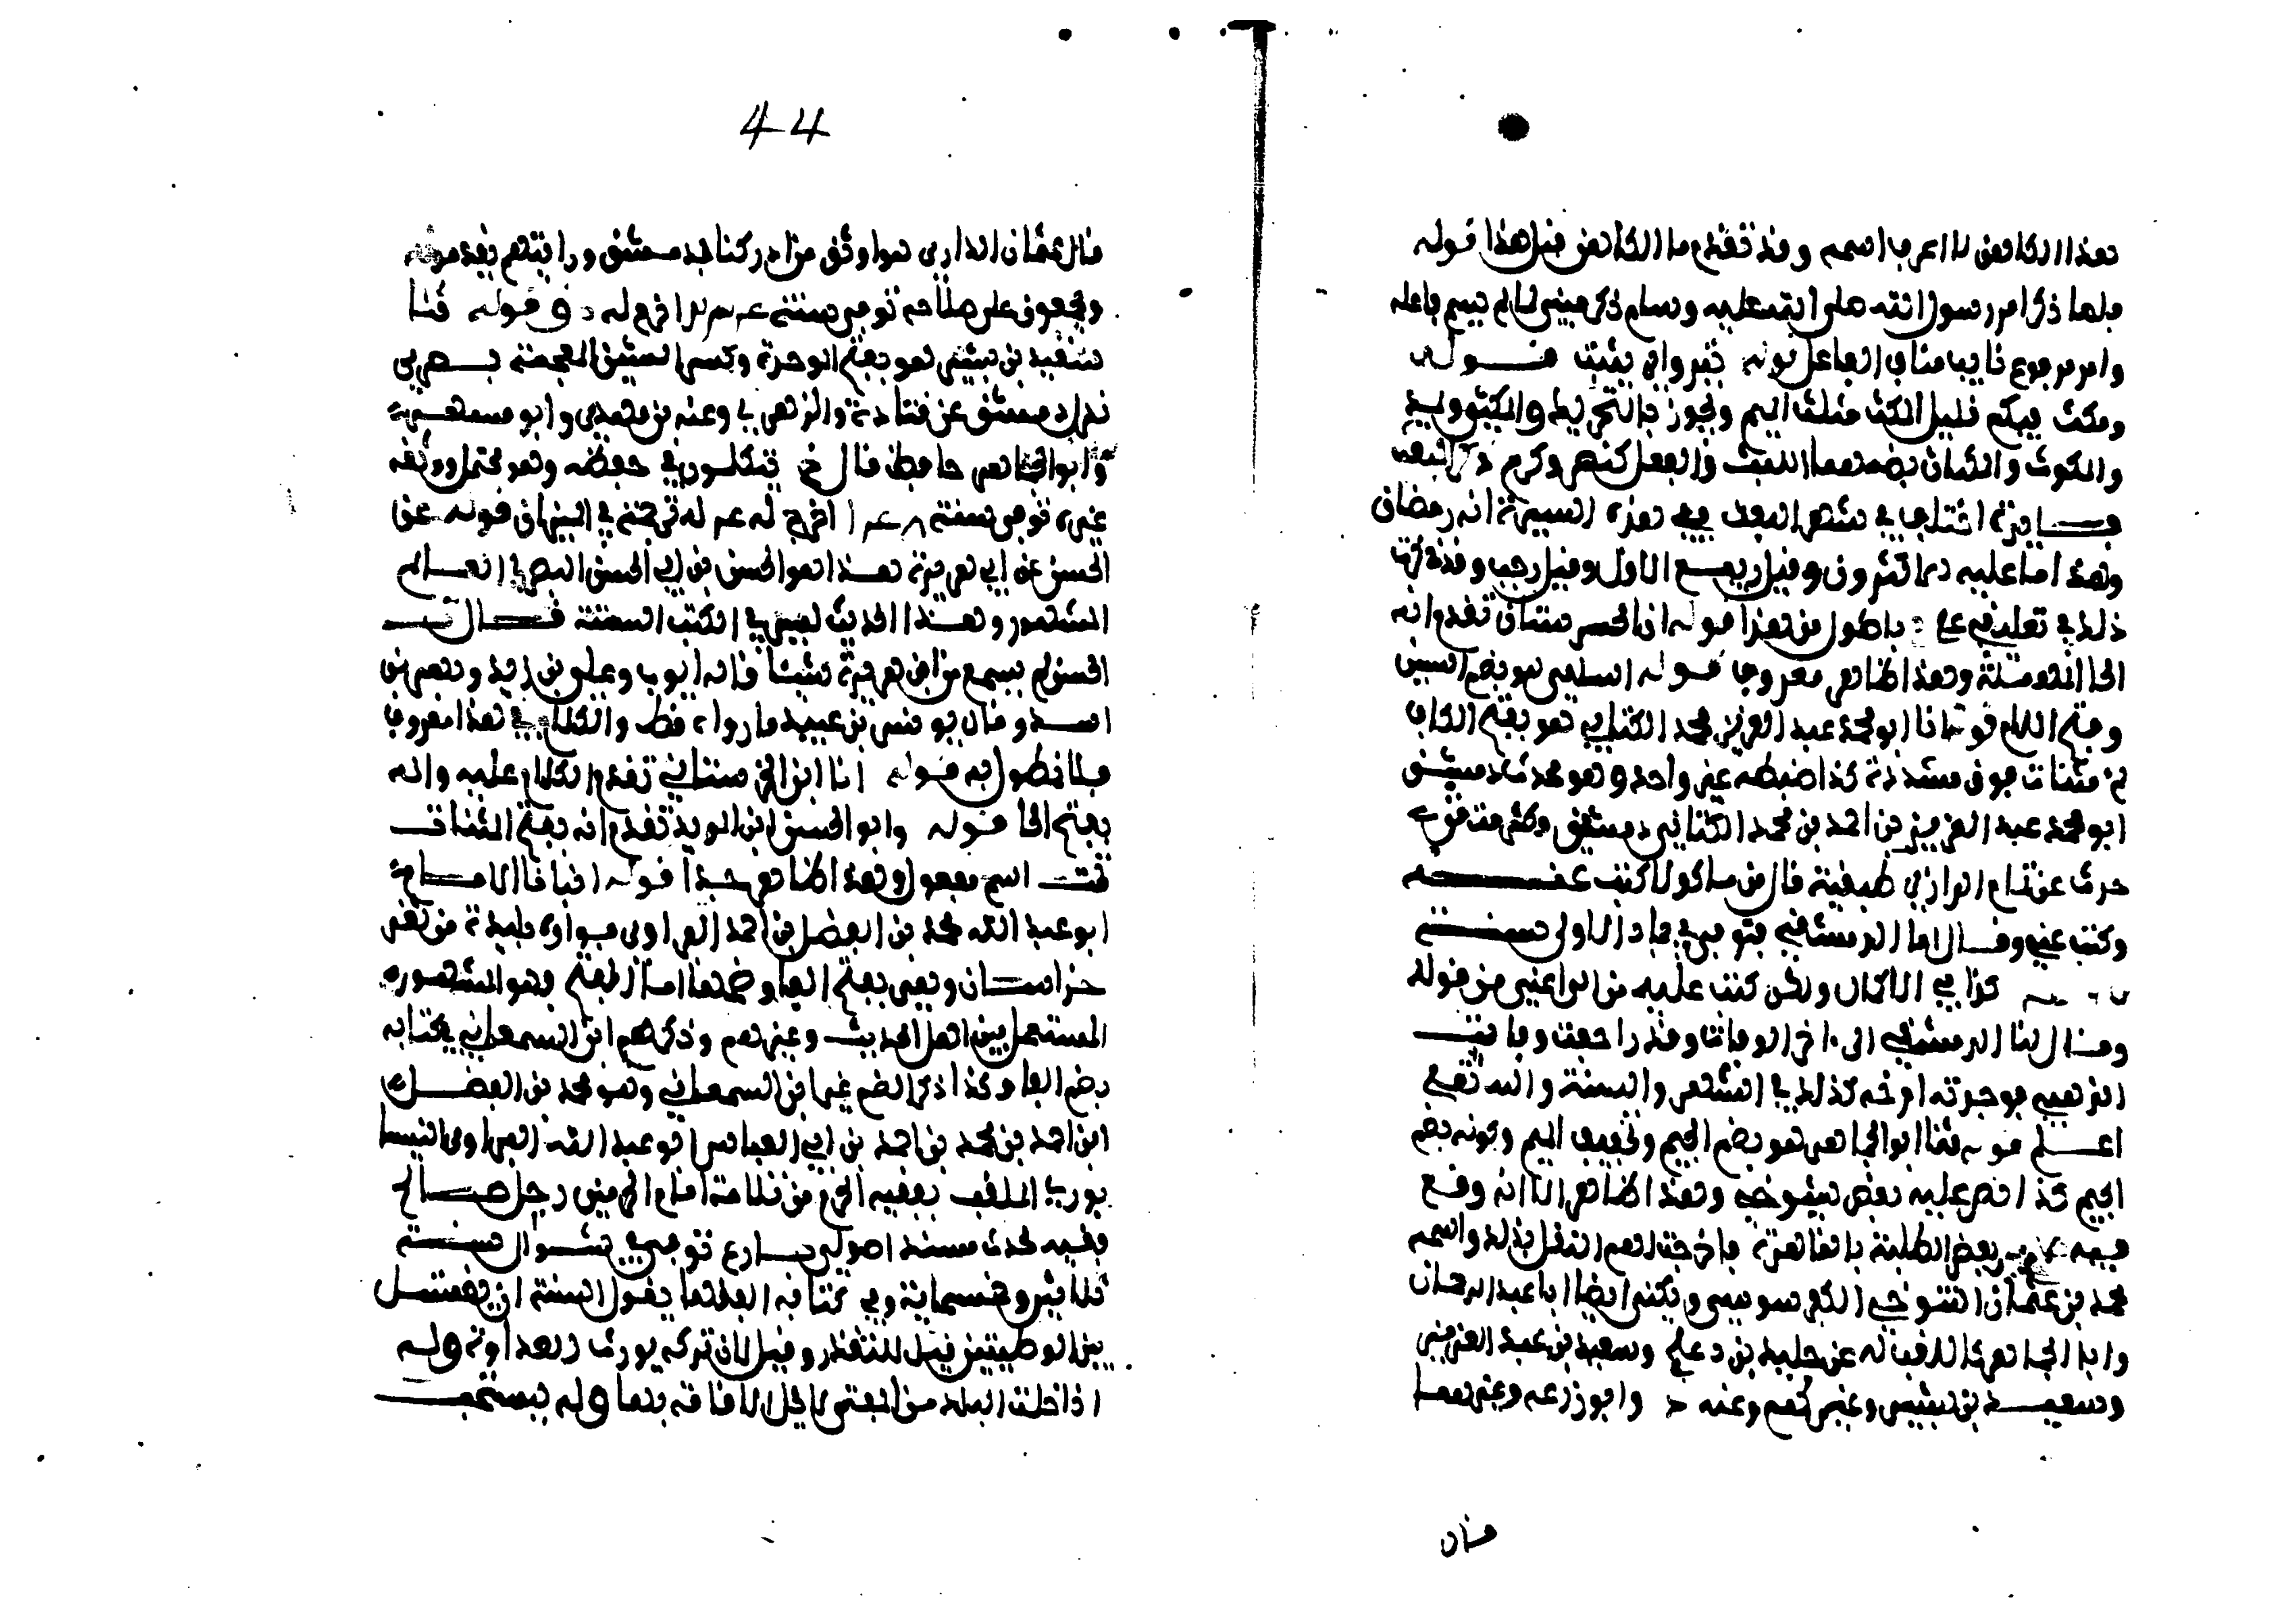 هذا الكاهن لا اعرف اسمه وقد تقدم ما الكاهن قبل هذا قوله
فلما ذكر امر رسول الله صلى الله عليه وسلم ذكر مبنى لما لم يسم فاعله
وامر مرفوع نايب مناب الفاعل قوله
ومكث فيكم قليل المكث مثلث الميم ويجوز
والكوث والكثان بضمهما اللبث والفعل كنصر وكرم
فــايدة اختلف في شهر البعث ففي هذه السيرة انه رمضان
وهذا ما عليه الاكثرون وقيل ربيع الاول وقيل رجب وقد ذكرت
ذلك في تعليقي على خ باطول من هذا قوله انا الحرستاني تقدم انه
الحا المهملة وهذا ظاهر معروف قوله السلمي هو بضم السين
وفتح اللام قوله انا ابو محمد عبد العزيز محمد الكتاني هو بفتح الكاف
ثم مثنات فوق مشددة كذا ضبطه غير واحد وهو محدث دمشق
ابو محمد عبد العزيز بن احمد بن محمد الكتاني دمشقي
حدث عن تمام الرازي طبقته قال بن ماكولا كتبت عنــه
وكتب عني وقــال انا الدمشقي توفي في جماد الاولى سنــة
كذا في الاكمال ولكن كتبت عليه من الراعني من قوله
وقــال لنا الدمشقي الى اخر الوفاة وقد راجعت وفات
الذهبي فوجدته ارخه كذلك في الشهر والسنة والله تعلى
اعــلم قوله ثنا ابو الجماهر هو بضم الجيم وتخفيف الميم وكونه بضم
الجيم كذا نص عليه بعض شيوخه وهذا ظاهر الا انه وقع
فيه بعض الطلبة بالقاهرة فاخرجت لهم النقل بذلك واسمه
محمد بن عثمان التنوخي الكفرسوسي ويكنى ايضا ابا عبد الرحمان
وابا الجماهر كاللقب له عن خليد بن دعلج وسعيد بن عبد العزيز
وسعيــد بن بشير وغيرهم وعنه د وابو زرعه وغيرهما
قال
44
قال عثمان الدارمي هوا وثق من ادركنا بدمشق ورايتهم يقدمونه
ويجمعون على صلاحه توفي سنة اخرج له د ق قوله ثنا
سعيد بن بشير هو بفتح الموحدة وكسر الشين المعجمة بــصري
نزل دمشق عن قتادة والزهري وعنه بن مهدي وابو مسهــر
وابو الجماهر حافظ قال خ يتكلمون في حفظه وهو محتمل ووثقه
غيره توفي سنة اخرج له عه له ترجمة في الميزان قوله عن
الحسن عن ابي هريرة هــذا هو الحسن بن ابي الحسن البصري العــالم
المشهور وهــذا الحديث ليس في الكتب الستة قــال
الحسن لم يسمع من ابي هريرة شيئا قاله ايوب وعلي بن زيد وبهز بن
اســد وقال يونس بن عبيد ما رواه قط والكلام في هذا معروف
فلا نطول به قوله انا ابن الحرستاني تقدم الكلام عليه وانه
بفتح الحا قوله وابو الحسن بن المويد تقدم انه بفتح المثنات
تحت اسم مفعول وهذا ظاهر جدا قوله انبانا الامــام
ابو عبد الله محمد بن الفضل بن احمد الفراوي فراوة بليدة من ثغر
خراســان وهي بفتح الفا وضمها اما الفتح فهو المشهور
المستعمل بين اهل الحديث وغيرهم وذكرهم ابن السمعاني في كتابه
بضم الفا وكذا ذكر الضم غير ابن السمعاني وهو محمد بن الفضــل
ابن احمد بن محمد بن احمد بن ابي العباس ابو عبد الله الفراوي النيسا
بوري الملقب بفقيه الحرم من تلامذة امام الحرمين رجل صــالح
فقيه محدث مسند اصولي بــارع توفي في شــوال سنــة
ثلاثين وخمسماية وفي كتابه يقول السنة ان يغتسل
بين الوطيين قيل للتقذر وقيل لان تركه يورث العداوة وله
اذا خلت البلد من المفتي لا يحل الاقامة بها وله